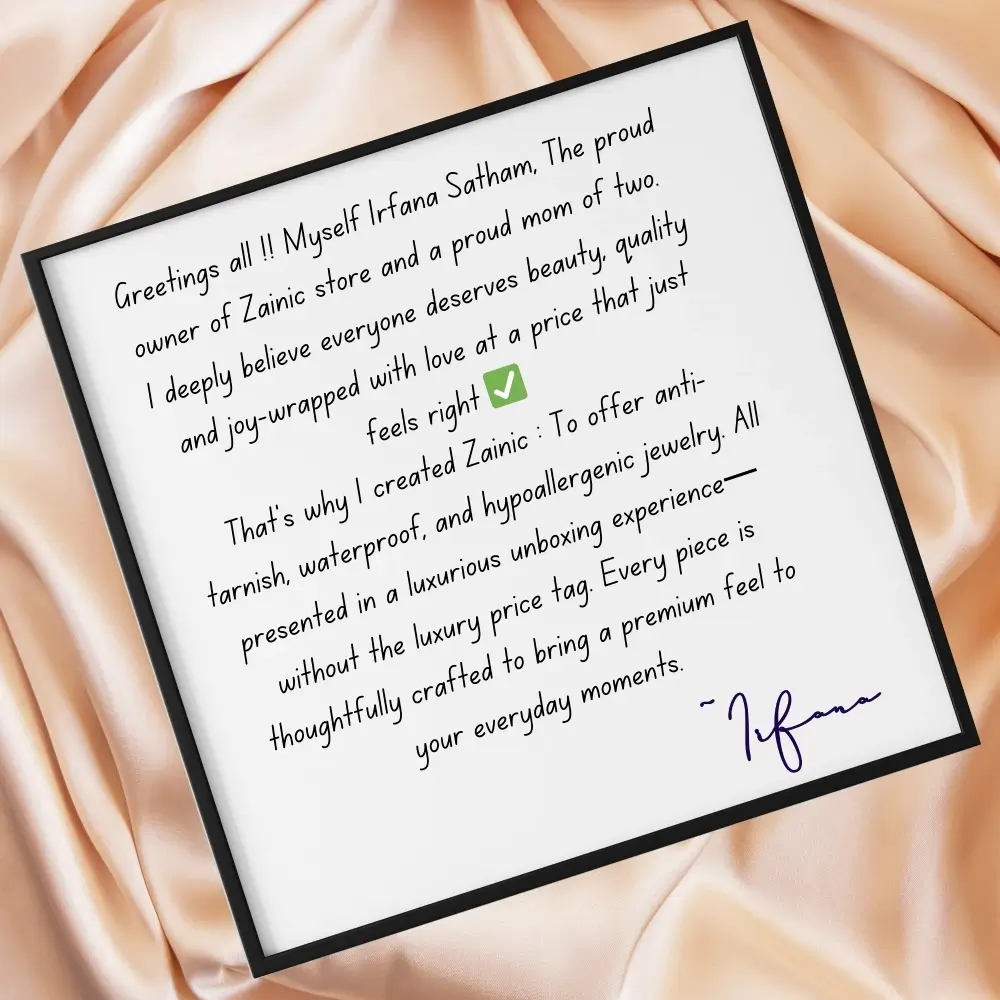 Greetings all !! Myself Irfana Satham, The proud
owner of Zainic store and a proud mom of two.
I deeply believe everyone deserves beauty, quality
and joy-wrapped with love at a price that just
feels right ✅
That's why I created Zainic : To offer anti-
tarnish, waterproof, and hypoallergenic jewelry. All
presented in a luxurious unboxing experience—
without the luxury price tag. Every piece is
thoughtfully crafted to bring a premium feel to
your everyday moments.
~ Irfana